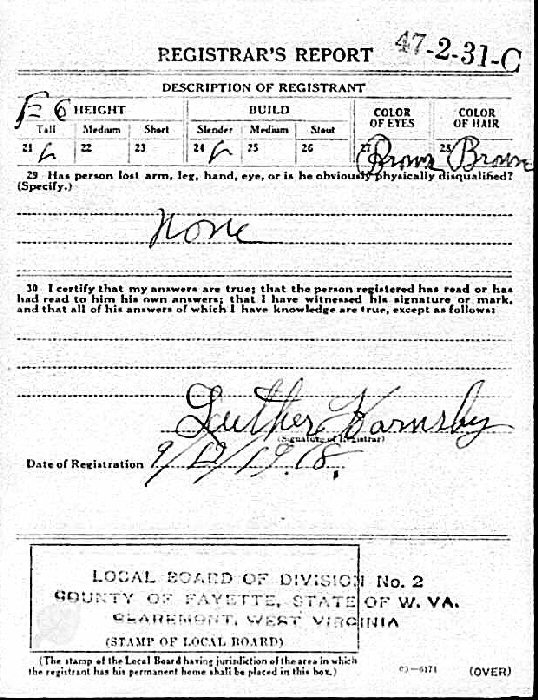 REGISTRAR'S REPORT 47-2-31-C
DESCRIPTION OF REGISTRANT
HEIGHT BUILD COLOR OF EYES COLOR OF HAIR
Tall Medium Short Slender Medium Stout
21 22 23 24 25 26 27 Brown 28 Brown
29 Has person lost arm, leg, hand, eye, or is he obviously physically disqualified?
(Specify.)
None
30 I certify that my answers are true; that the person registered has read or has
had read to him his own answers; that I have witnessed his signature or mark,
and that all of his answers of which I have knowledge are true, except as follows:
Luther
(Signature of Registrar)
Date of Registration 9/12/1918.
LOCAL BOARD OF DIVISION No. 2
COUNTY OF FAYETTE, STATE OF W. VA.
CLAREMONT, WEST VIRGINIA
(STAMP OF LOCAL BOARD)
(The stamp of the Local Board having jurisdiction of the area in which
the registrant has his permanent home shall be placed in this box.)
(OVER)